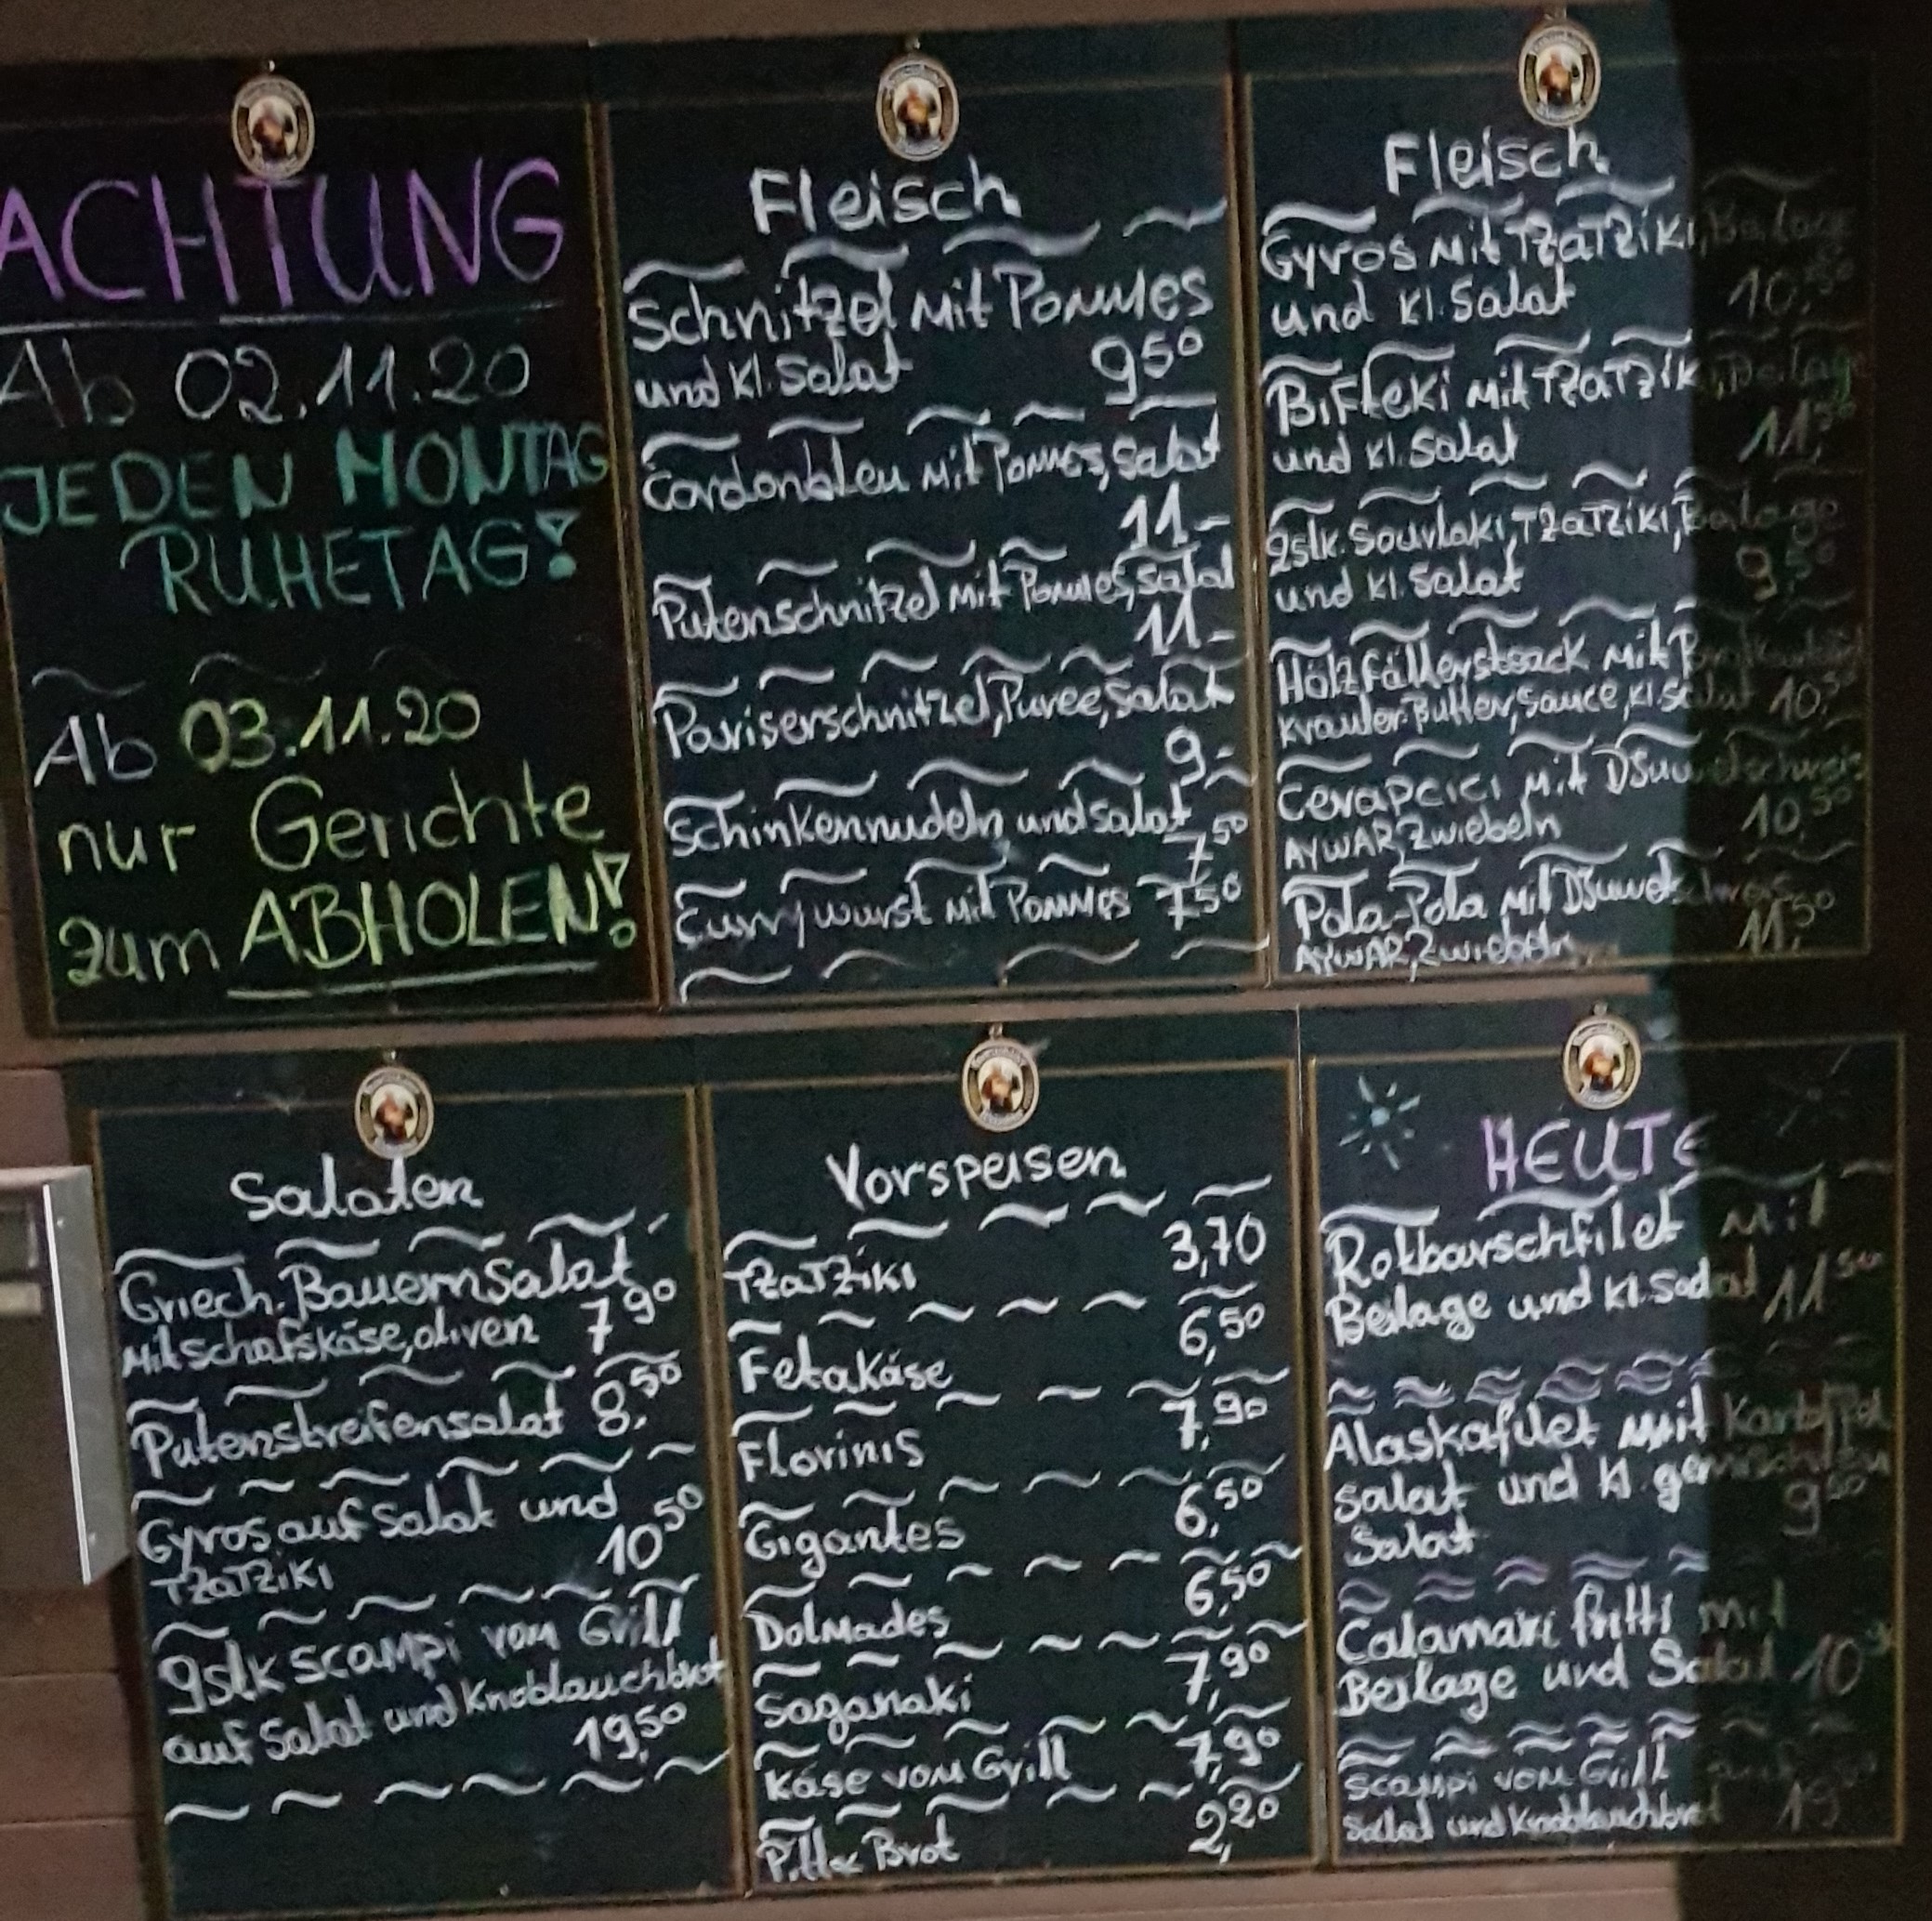 ACHTUNG
Ab 02.11.20
JEDEN MONTAG
RUHETAG!
Ab 03.11.20
nur Gerichte
zum ABHOLEN!
Fleisch
Schnitzel mit Pommes
und Kl. Salat 9 50
Cordonbleu mit Pommes, Salat
11.-
Putenschnitzel mit Pommes, Salat
11.-
Pariserschnitzel, Puree, Salat
9.-
Schinkennudeln und Salat
7 50
Currywurst mit Pommes 7 50
Fleisch
Gyros mit TZATZIKI, Beilage
und Kl. Salat 10,50
Bifteki mit TZATZIKI, Beilage
und Kl. Salat 11,50
2stk. Souvlaki, TZATZIKI, Beilage
und Kl. Salat 9,50
Holzfällersteack mit Bratkartoffel
Kräuter Butter, Sauce, Kl. Salat 10,50
Cevapcici mit DJuwetschreis
AYWAR, Zwiebeln 10,50
Pola-Pola mit DJuwetschreis
AYWAR, Zwiebeln 11,50
Salaten
Griech. Bauernsalat
mit Schafskäse, Oliven 7 90
Putenstreifensalat 8,50
Gyros auf Salat und
TZATZIKI 10 50
9stk Scampi vom Grill
auf Salat und Knoblauchbrot
19,50
Vorspeisen
TZATZIKI 3,70
FetaKäse 6,50
Florinis 7,90
Gigantes 6,50
Dolmades 6,50
Saganaki 7,90
Käse vom Grill 7,90
Pitta Brot 2,20
HEUTE
Rotbarschfilet mit
Beilage und Kl. Salat 11 50
Alaskafilet mit Kartoffel
Salat und Kl. gemischten
Salat 9 50
Calamari fritti mit
Beilage und Salat 10
Scampi vom Grill auf
Salat und Knoblauchbrot 19